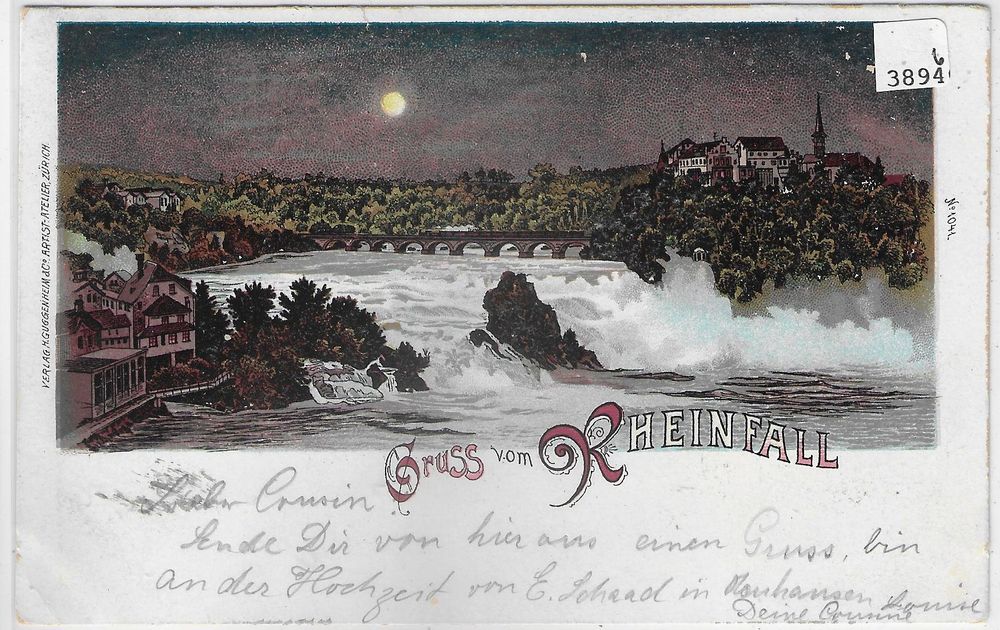 38946
VERLAG. H. GUGGENHEIM & Co. ARTIST. ATELIER, ZÜRICH.
No 1041.
Gruss vom RHEINFALL
Lieber Cousin
Sende Dir von hier aus einen Gruss, bin
an der Hochzeit von E. Schaad in Neuhausen
Deine Cousine Louise